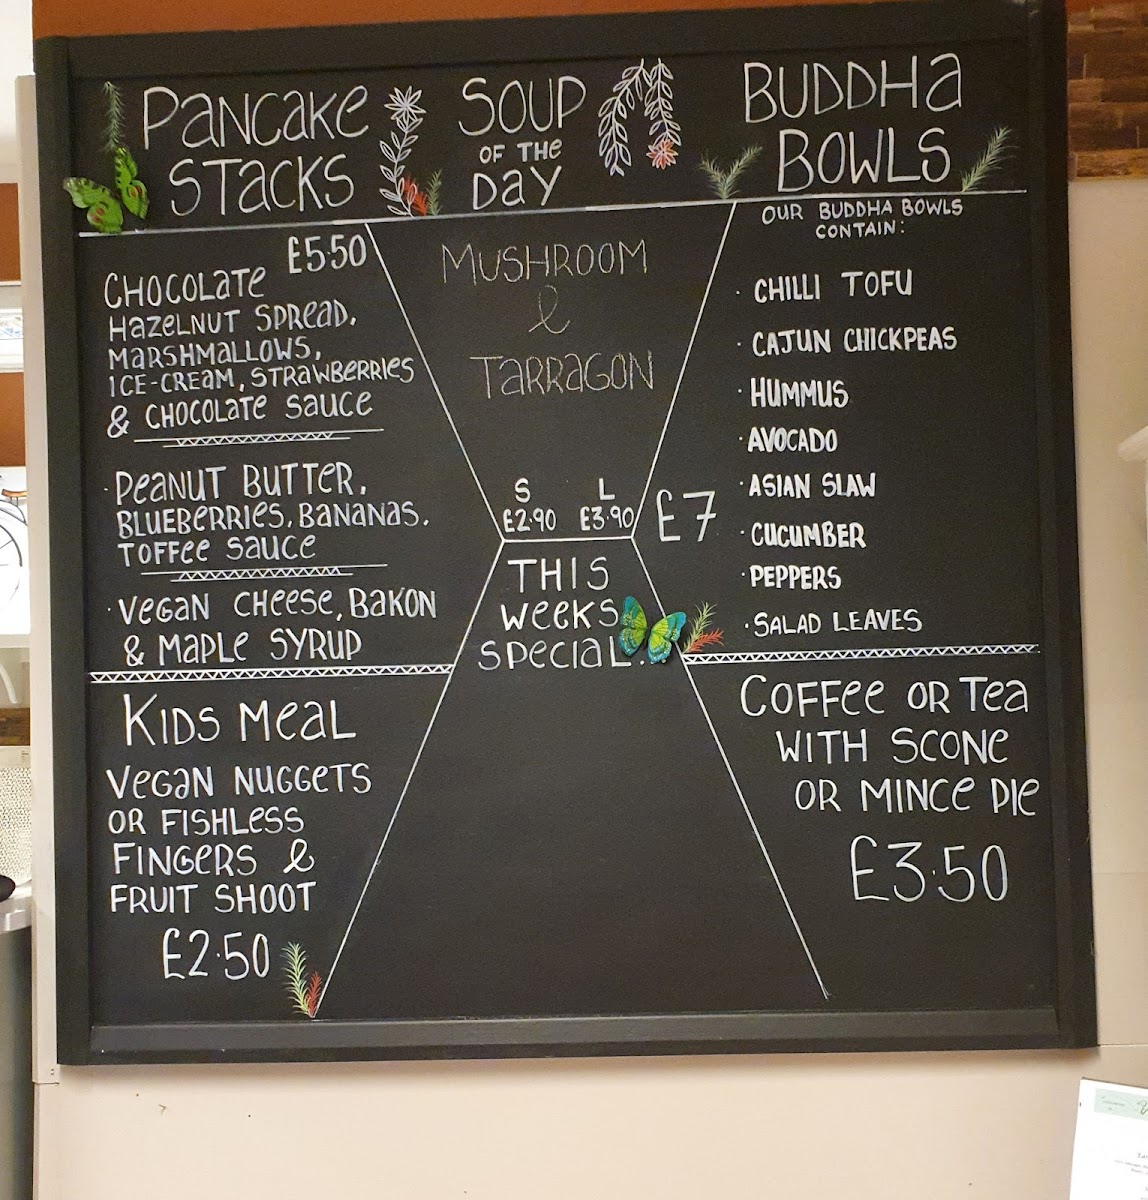 PANCAKE
STACKS
£5.50
CHOCOLATE
HAZELNUT SPREAD,
MARSHMALLOWS,
ICE-CREAM, STRAWBERRIES
& CHOCOLATE SAUCE
· PEANUT BUTTER,
BLUEBERRIES, BANANAS,
TOFFEE SAUCE
· VEGAN CHEESE, BAKON
& MAPLE SYRUP
KIDS MEAL
VEGAN NUGGETS
OR FISHLESS
FINGERS &
FRUIT SHOOT
£2.50
SOUP
OF THE
DAY
MUSHROOM
&
TARRAGON
S L
£2.90 £3.90
THIS
WEEKS
SPECIAL.
BUDDHA
BOWLS
OUR BUDDHA BOWLS
CONTAIN:
· CHILLI TOFU
· CAJUN CHICKPEAS
· HUMMUS
· AVOCADO
· ASIAN SLAW
£7
· CUCUMBER
· PEPPERS
· SALAD LEAVES
COFFEE OR TEA
WITH SCONE
OR MINCE PIE
£3.50